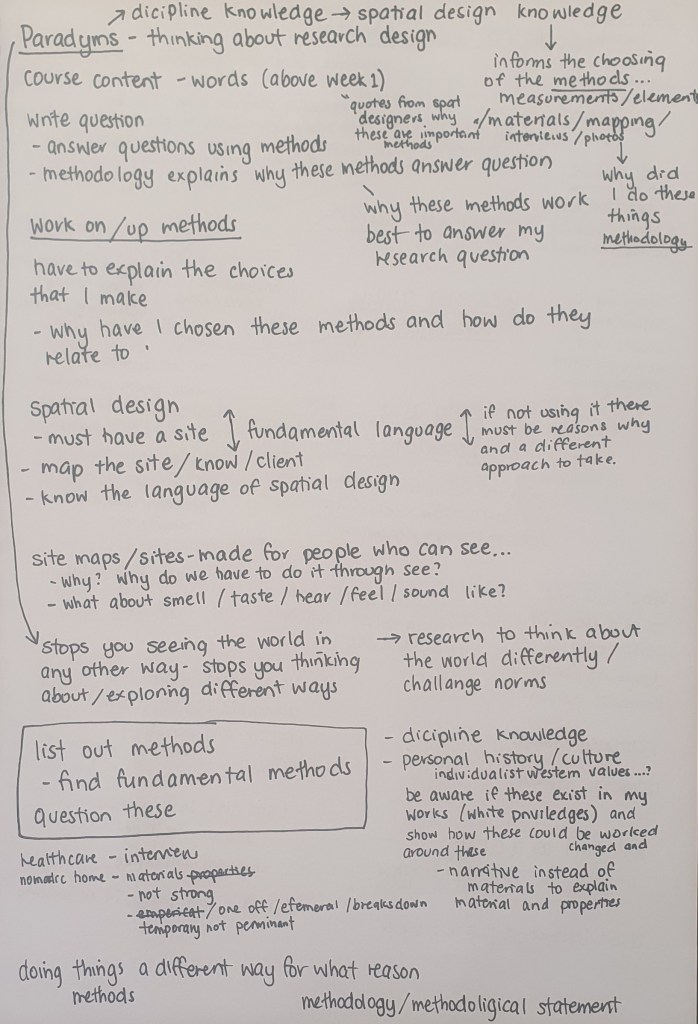 ↗ dicipline knowledge → spatial design knowledge
Paradyms - thinking about research design
informs the choosing
of the methods...
measurements/element
/materials/mapping/
interviews/photos
why did
I do these
things
methodology
course content - words (above week 1)
write question
"quotes from spat
designers why
these are important
methods
- answer questions using methods
- methodology explains why these methods answer question
why these methods work
best to answer my
research question
work on/up methods
have to explain the choices
that I make
- why have I chosen these methods and how do they
relate to
spatial design
- must have a site ↕ fundamental language ↕
if not using it there
must be reasons why
and a different
approach to take.
- map the site/know/client
- know the language of spatial design
site maps/sites-made for people who can see...
- why? why do we have to do it through see?
- what about smell/taste/hear/feel/sound like?
stops you seeing the world in
any other way- stops you thinking
about/exploring different ways
→ research to think about
the world differently/
challange norms
list out methods
- find fundamental methods
question these
- dicipline knowledge
- personal history/culture
individualist western values...?
be aware if these exist in my
works (white priviledges) and
show how these could be worked
around these changed and
- narritive instead of
materials to explain
material and properties
healthcare - interview
nomadic home - materials properties
- not strong
- emperical/one off/efemeral/breaksdown
temporary not perminent
doing things a different way for what reason
methods
methodology/methodoligical statement